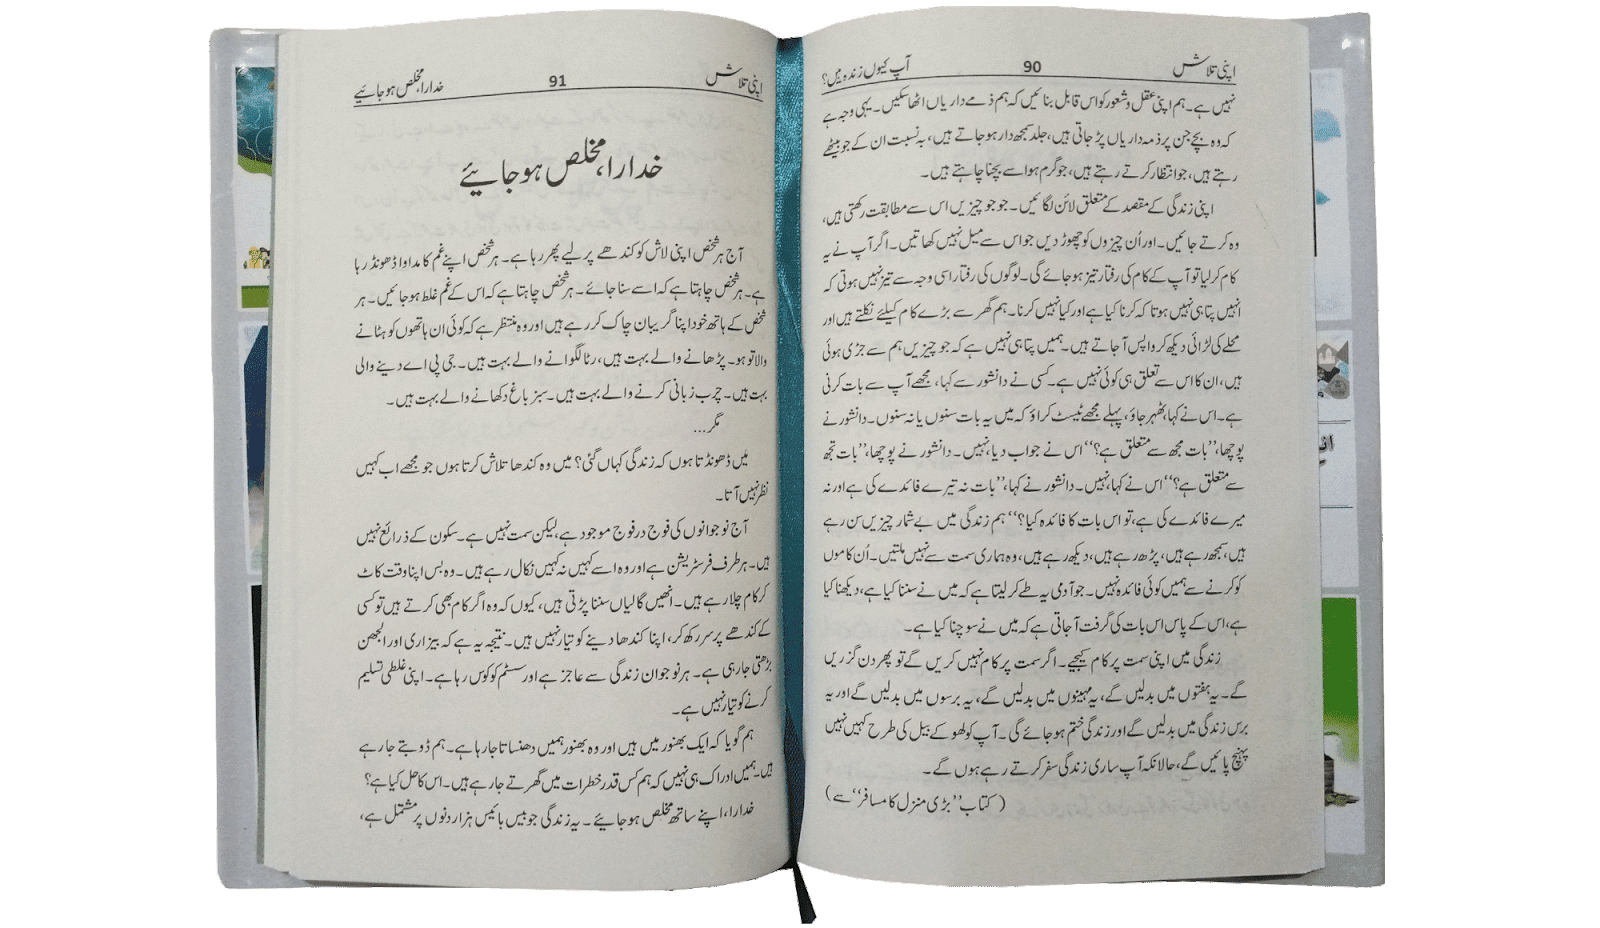 اپنی تلاش 90 آپ کیوں زندہ ہیں؟
نہیں ہے۔ ہم اپنی عقل و شعور کو اس قابل بنائیں کہ ہم ذمے داریاں اٹھا سکیں۔ یہی وجہ ہے
کہ وہ بچے جن پر ذمہ داریاں پڑ جاتی ہیں، جلد سمجھ دار ہو جاتے ہیں، بہ نسبت ان کے جو بیٹھے
رہتے ہیں، جو انتظار کرتے رہتے ہیں، جو گرم ہوا سے بچنا چاہتے ہیں۔
اپنی زندگی کے مقصد کے متعلق لائن لگائیں۔ جو جو چیزیں اس سے مطابقت رکھتی ہیں،
وہ کرتے جائیں۔ اور اُن چیزوں کو چھوڑ دیں جو اس سے میل نہیں کھاتیں۔ اگر آپ نے یہ
کام کر لیا تو آپ کے کام کی رفتار تیز ہو جائے گی۔ لوگوں کی رفتار اسی وجہ سے تیز نہیں ہوتی کہ
انہیں پتا ہی نہیں ہوتا کہ کرنا کیا ہے اور کیا نہیں کرنا۔ ہم گھر سے بڑے کام کیلئے نکلتے ہیں اور
محلے کی لڑائی دیکھ کر واپس آ جاتے ہیں۔ ہمیں پتا ہی نہیں ہے کہ جو چیزیں ہم سے جڑی ہوئی
ہیں، ان کا اس سے تعلق ہی کوئی نہیں ہے۔ کسی نے دانشور سے کہا، مجھے آپ سے بات کرنی
ہے۔ اس نے کہا، ٹھہر جاؤ، پہلے مجھے ٹیسٹ کراؤ کہ میں یہ بات سنوں یا نہ سنوں۔ دانشور نے
پوچھا، ’’بات مجھ سے متعلق ہے؟‘‘ اس نے جواب دیا، نہیں۔ دانشور نے پوچھا، ’’بات تجھ
سے متعلق ہے؟‘‘ اس نے کہا، نہیں۔ دانشور نے کہا، ’’بات نہ تیرے فائدے کی ہے اور نہ
میرے فائدے کی ہے، تو اس بات کا فائدہ کیا؟‘‘ ہم زندگی میں بے شمار چیزیں سن رہے
ہیں، سمجھ رہے ہیں، پڑھ رہے ہیں، دیکھ رہے ہیں، وہ ہماری سمت سے نہیں ملتیں۔ اُن کاموں
کو کرنے سے ہمیں کوئی فائدہ نہیں۔ جو آدمی یہ طے کر لیتا ہے کہ میں نے سننا کیا ہے، دیکھنا کیا
ہے، اس کے پاس اس بات کی گرفت آ جاتی ہے کہ میں نے سوچنا کیا ہے۔
زندگی میں اپنی سمت پر کام کیجیے۔ اگر سمت پر کام نہیں کریں گے تو پھر دن گزریں
گے۔ یہ ہفتوں میں بدلیں گے، یہ مہینوں میں بدلیں گے، یہ برسوں میں بدلیں گے اور یہ
برس زندگی میں بدلیں گے اور زندگی ختم ہو جائے گی۔ آپ کولھو کے بیل کی طرح کہیں نہیں
پہنچ پائیں گے، حالانکہ آپ ساری زندگی سفر کرتے رہے ہوں گے۔
(کتاب ’’بڑی منزل کا مسافر‘‘ سے)
اپنی تلاش 91 خدارا، مخلص ہو جائیے
خدارا، مخلص ہو جائیے
آج ہر شخص اپنی لاش کو کندھے پر لیے پھر رہا ہے۔ ہر شخص اپنے غم کا مداوا ڈھونڈ رہا
ہے۔ ہر شخص چاہتا ہے کہ اسے سنا جائے۔ ہر شخص چاہتا ہے کہ اس کے غم غلط ہو جائیں۔ ہر
شخص کے ہاتھ خود اپنا گریبان چاک کر رہے ہیں اور وہ منتظر ہے کہ کوئی ان ہاتھوں کو ہٹانے
والا تو ہو۔ پڑھانے والے بہت ہیں، رٹا لگوانے والے بہت ہیں۔ جی پی اے دینے والی
بہت ہیں۔ چرب زبانی کرنے والے بہت ہیں۔ سبز باغ دکھانے والے بہت ہیں۔
مگر...
میں ڈھونڈتا ہوں کہ زندگی کہاں گئی؟ میں وہ کندھا تلاش کرتا ہوں جو مجھے اب کہیں
نظر نہیں آتا۔
آج نوجوانوں کی فوج در فوج موجود ہے، لیکن سمت نہیں ہے۔ سکون کے ذرائع نہیں
ہیں۔ ہر طرف فرسٹریشن ہے اور وہ اسے کہیں نہ کہیں نکال رہے ہیں۔ وہ بس اپنا وقت کاٹ
کر کام چلا رہے ہیں۔ انھیں گالیاں سننا پڑتی ہیں، کیوں کہ وہ اگر کام بھی کرتے ہیں تو کسی
کے کندھے پر سر رکھ کر، اپنا کندھا دینے کو تیار نہیں ہیں۔ نتیجہ یہ ہے کہ بیزاری اور الجھن
بڑھتی جا رہی ہے۔ ہر نوجوان زندگی سے عاجز ہے اور سسٹم کو کوس رہا ہے۔ اپنی غلطی تسلیم
کرنے کو تیار نہیں ہے۔
ہم گویا کہ ایک بھنور میں ہیں اور وہ بھنور ہمیں دھنساتا جا رہا ہے۔ ہم ڈوبتے جا رہے
ہیں۔ ہمیں ادراک ہی نہیں کہ ہم کس قدر خطرات میں گھرتے جا رہے ہیں۔ اس کا حل کیا ہے؟
خدارا، اپنے ساتھ مخلص ہو جائیے۔ یہ زندگی جو بیس بائیس ہزار دنوں پر مشتمل ہے،